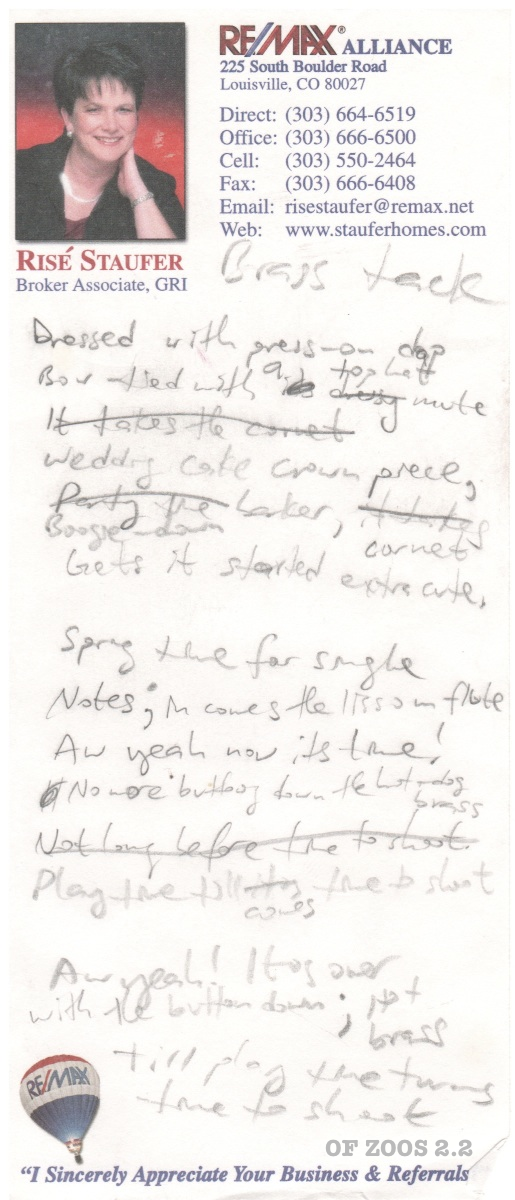 RE/MAX® ALLIANCE
225 South Boulder Road
Louisville, CO 80027
Direct: (303) 664-6519
Office: (303) 666-6500
Cell: (303) 550-2464
Fax: (303) 666-6408
Email: risestaufer@remax.net
Web: www.stauferhomes.com
RISÉ STAUFER
Broker Associate, GRI
Brass tack
Dressed with press-on dap
Bow-tied with a top hat mute
It takes the cornet
Wedding cake crown piece,
Party the barker,
Boogie-down cornet
Gets it started extra cute.
Spring time for single
Notes; in comes the lissom flute
Aw yeah now its time!
No more buttoning down the hot-dog
brass
Not long before time to shoot.
Play time till comes time to shoot
Aw yeah! It's over
with the button down; hot
brass
till play time turns
time to shoot
RE/MAX
OF ZOOS 2.2
“I Sincerely Appreciate Your Business & Referrals